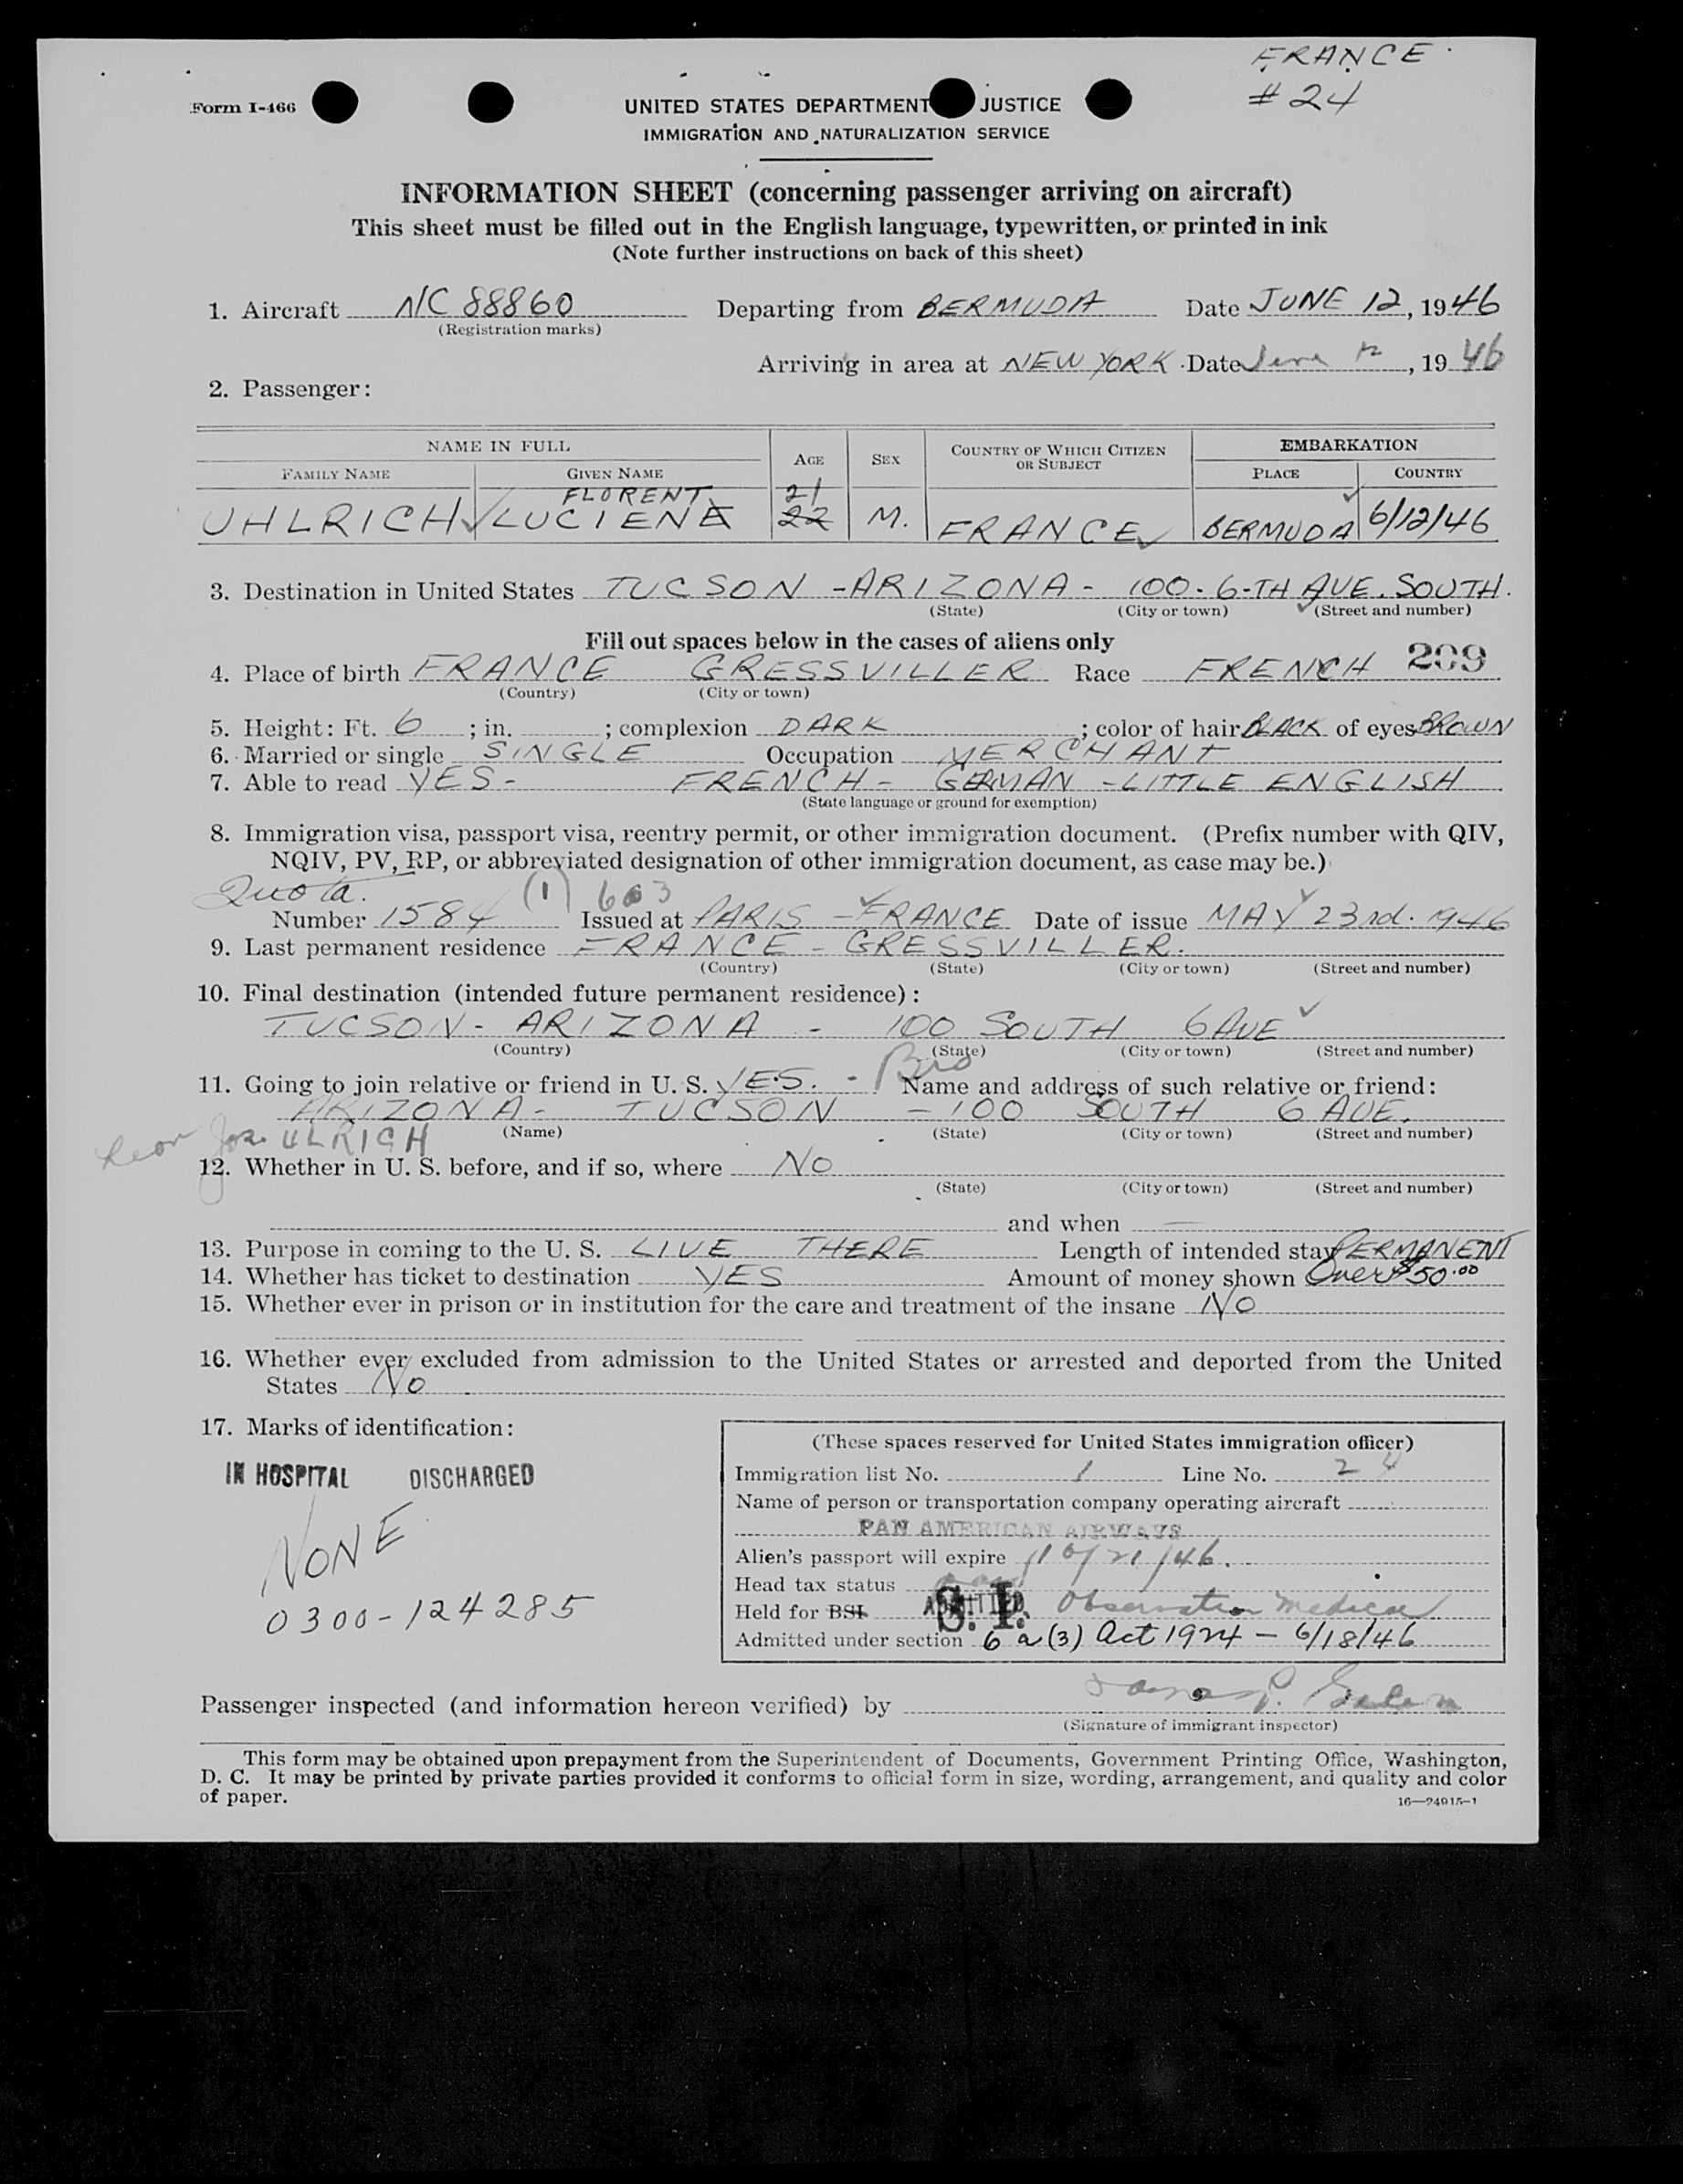 FRANCE
# 24
Form I-466
UNITED STATES DEPARTMENT JUSTICE
IMMIGRATION AND NATURALIZATION SERVICE
INFORMATION SHEET (concerning passenger arriving on aircraft)
This sheet must be filled out in the English language, typewritten, or printed in ink
(Note further instructions on back of this sheet)
1. Aircraft NC 88860 Departing from BERMUDA Date JUNE 12, 1946
(Registration marks)
Arriving in area at NEW YORK Date June 12, 1946
2. Passenger:
NAME IN FULL AGE SEX COUNTRY OF WHICH CITIZEN OR SUBJECT EMBARKATION
FAMILY NAME GIVEN NAME PLACE COUNTRY
FLORENT 21
UHLRICH LUCIENE 22 M. FRANCE BERMUDA 6/12/46
3. Destination in United States TUCSON - ARIZONA - 100 - 6-TH AVE. SOUTH.
(State) (City or town) (Street and number)
Fill out spaces below in the cases of aliens only
4. Place of birth FRANCE GRESSVILLER Race FRENCH 209
(Country) (City or town)
5. Height: Ft. 6 ; in. ; complexion DARK ; color of hair BLACK of eyes BROWN
6. Married or single SINGLE Occupation MERCHANT
7. Able to read YES - FRENCH - GERMAN - LITTLE ENGLISH
(State language or ground for exemption)
8. Immigration visa, passport visa, reentry permit, or other immigration document. (Prefix number with QIV,
NQIV, PV, RP, or abbreviated designation of other immigration document, as case may be.)
Quota. (1) 603
Number 1584 Issued at PARIS - FRANCE Date of issue MAY 23rd. 1946
9. Last permanent residence FRANCE - GRESSVILLER.
(Country) (State) (City or town) (Street and number)
10. Final destination (intended future permanent residence):
TUCSON - ARIZONA - 100 SOUTH 6 AVE
(Country) (State) (City or town) (Street and number)
Bro
11. Going to join relative or friend in U. S. YES. - Name and address of such relative or friend:
ARIZONA - TUCSON - 100 SOUTH 6 AVE.
(Name) (State) (City or town) (Street and number)
ULRICH
12. Whether in U. S. before, and if so, where NO
(State) (City or town) (Street and number)
and when —
13. Purpose in coming to the U. S. LIVE THERE Length of intended stay PERMANENT
14. Whether has ticket to destination YES Amount of money shown Over $50.00
15. Whether ever in prison or in institution for the care and treatment of the insane NO
16. Whether ever excluded from admission to the United States or arrested and deported from the United
States NO
17. Marks of identification:
IN HOSPITAL DISCHARGED
NONE
0300-124285
(These spaces reserved for United States immigration officer)
Immigration list No. 1 Line No. 24
Name of person or transportation company operating aircraft
PAN AMERICAN AIRWAYS
Alien's passport will expire 10/21/46.
Head tax status
Held for BSI ADMITTED S. I. Observation medical
Admitted under section 6 a (3) Act 1924 - 6/18/46
Passenger inspected (and information hereon verified) by
(Signature of immigrant inspector)
This form may be obtained upon prepayment from the Superintendent of Documents, Government Printing Office, Washington,
D. C. It may be printed by private parties provided it conforms to official form in size, wording, arrangement, and quality and color
of paper.
16—24915-1